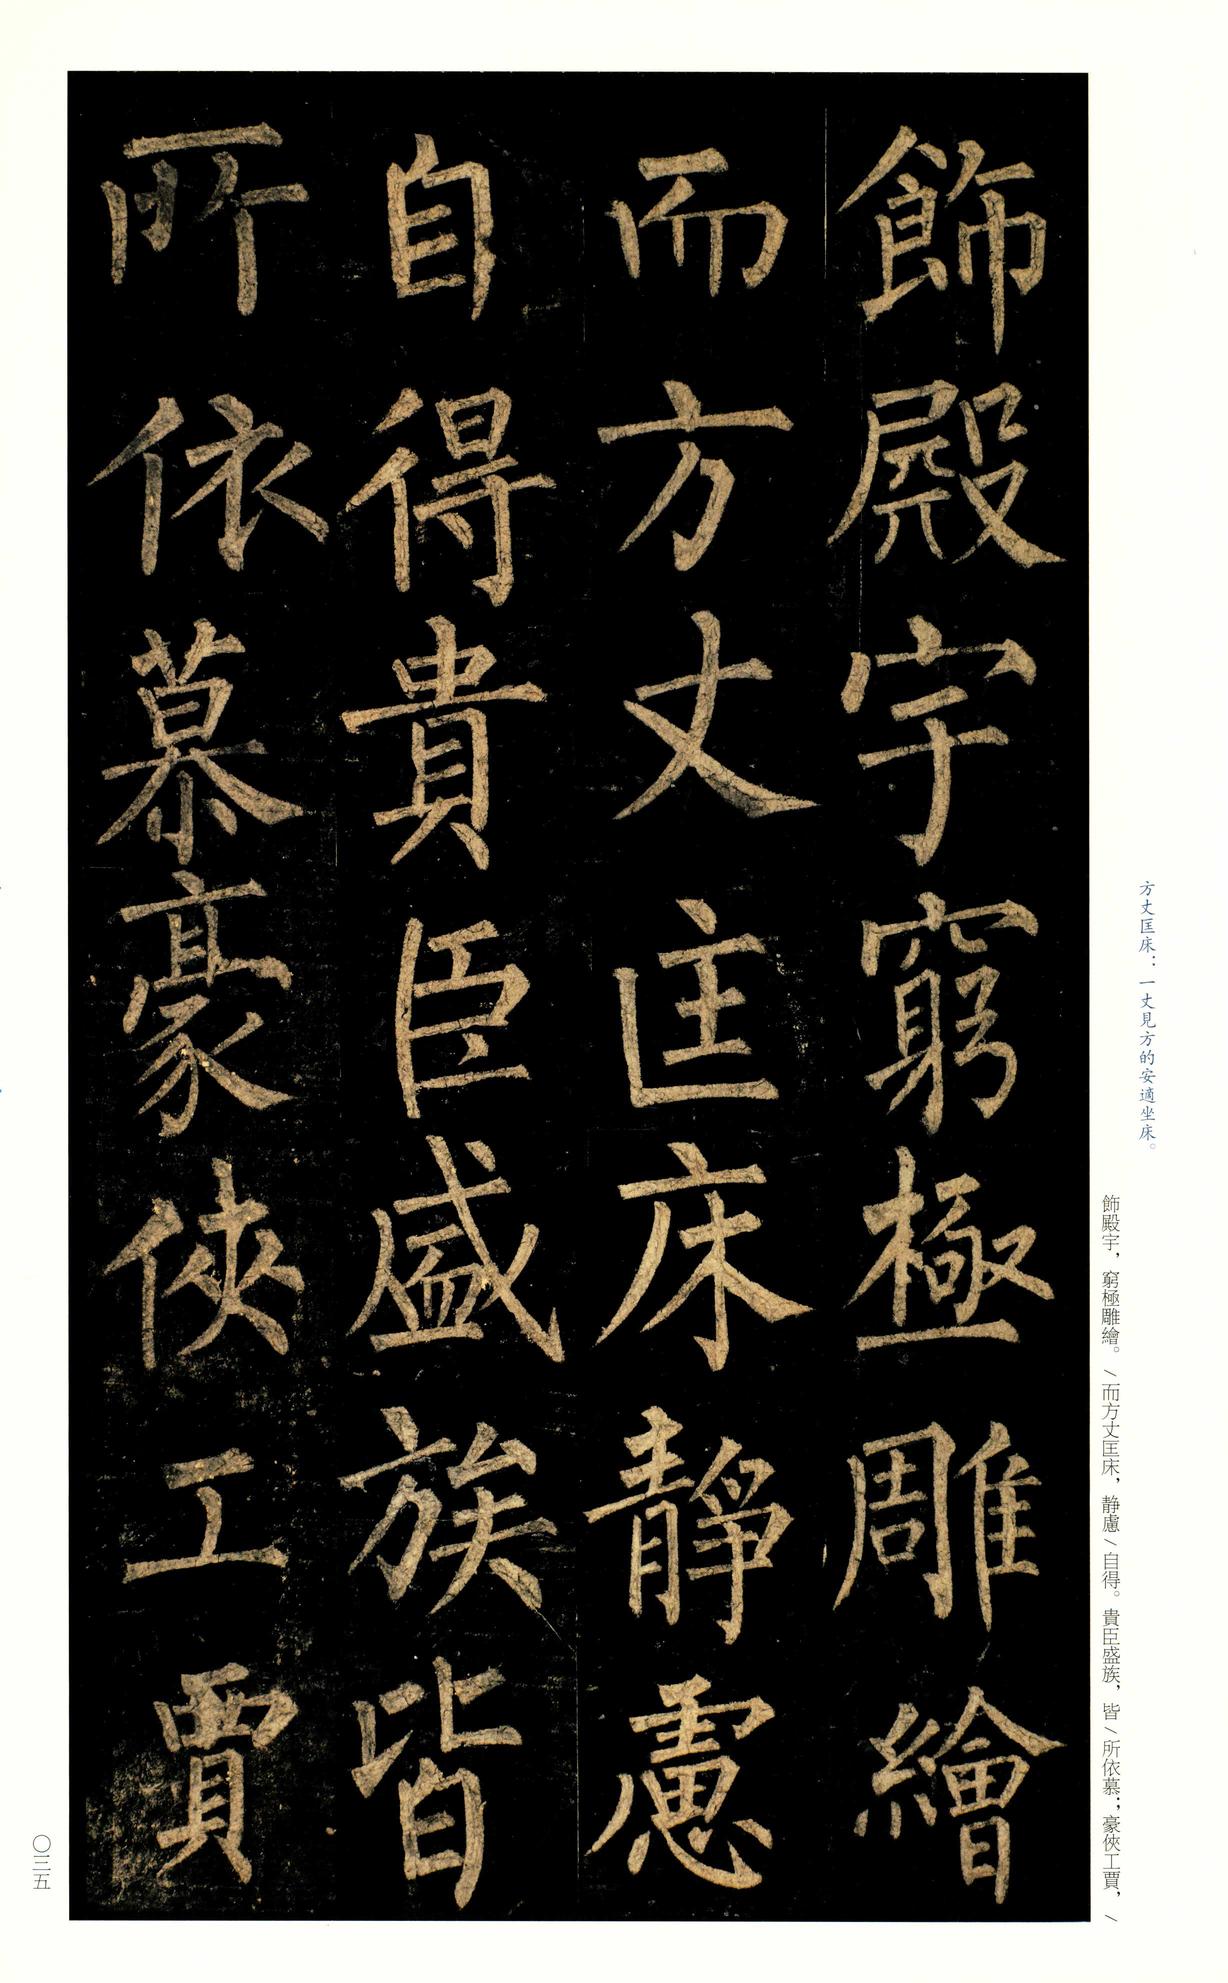 方丈匡床：一丈見方的安適坐床。
飾殿宇，窮極雕繪。/而方丈匡床，静慮/自得。貴臣盛族，皆/所依慕；豪俠工賈，/
飾殿宇窮極雕繪
而方丈匡床静慮
自得貴臣盛族皆
所依慕豪俠工賈
〇三五